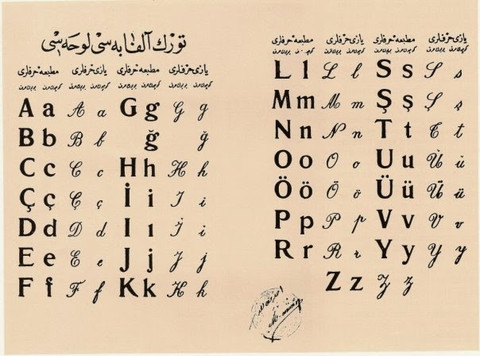 تورك آلفا به سی لوحه سی
مطبعه حرفلری یازی حرفلری مطبعه حرفلری یازی حرفلری
A a A a G g G g
B b B b ğ ğ
C c C c H h H h
Ç ç Ç ç İ i İ i
D d D d I ı
E e E e J j J j
F f F f K k K k
مطبعه حرفلری یازی حرفلری مطبعه حرفلری یازی حرفلری
L l L l S s S s
M m M m Ş ş Ş ş
N n N n T t T t
O o O o U u
Ö ö Ö ö Ü ü Ü ü
P p P p V v V v
R r R r Y y Y y
Z z Z z